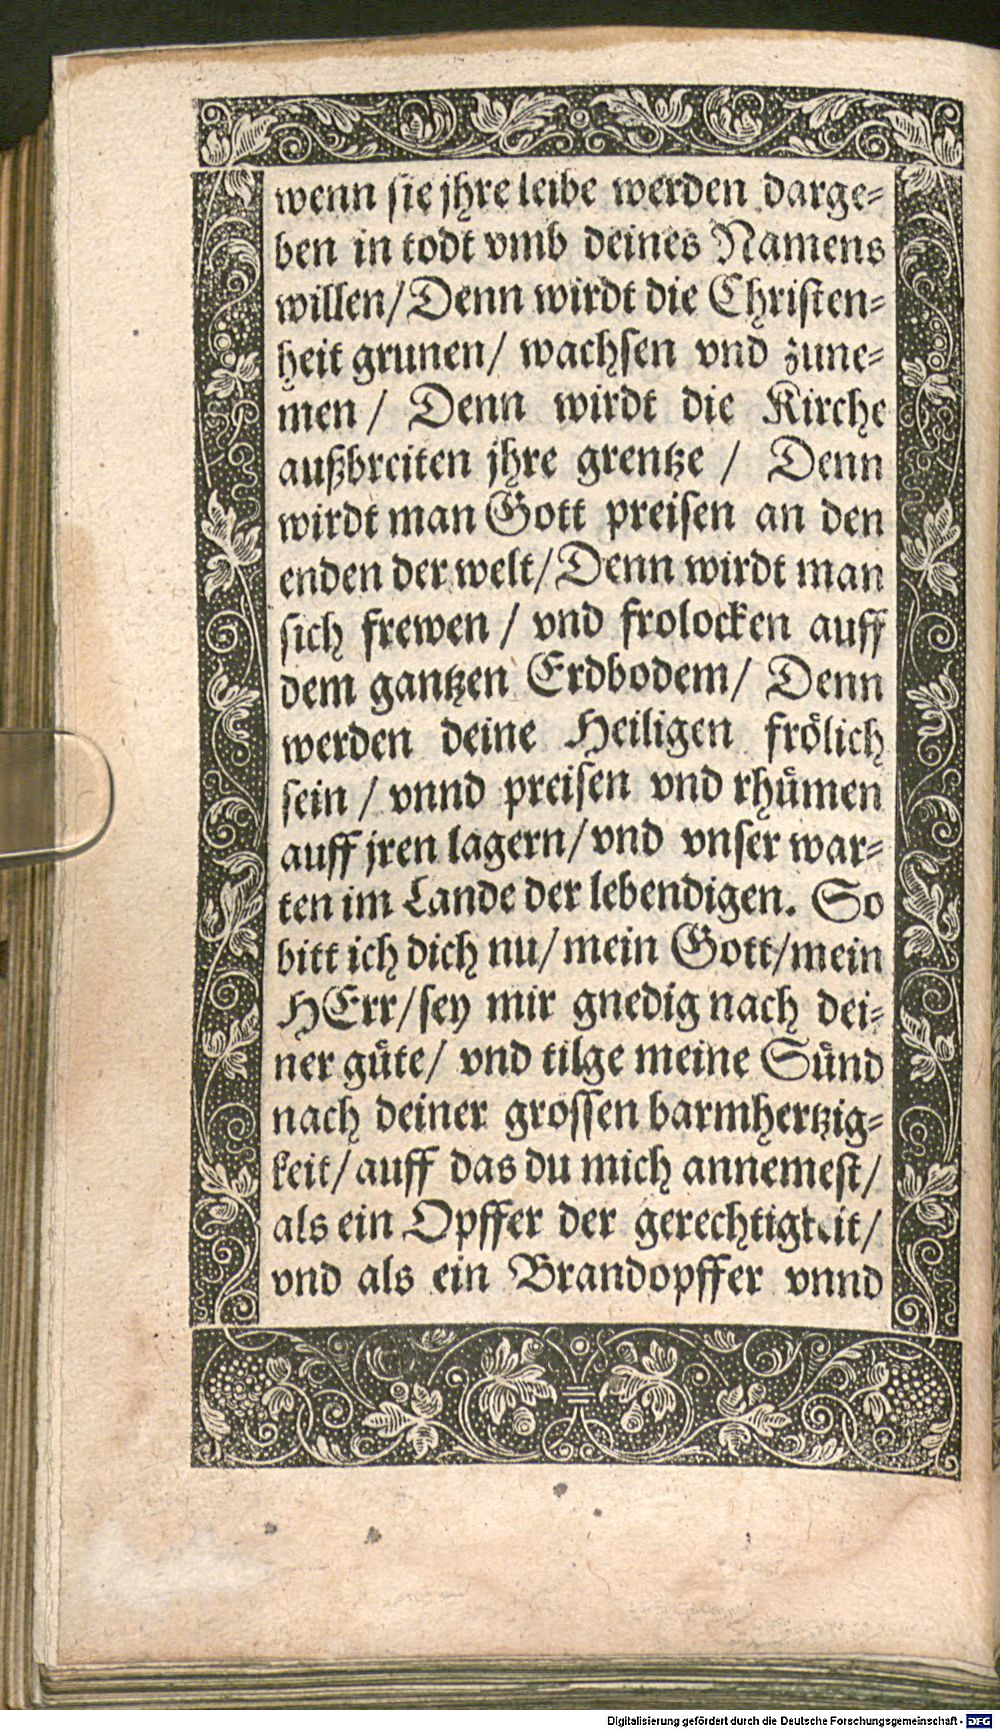 wenn sie jhre leibe werden darge-
ben in todt vmb deines Namens
willen/Denn wirdt die Christen-
heit grunen/ wachsen vnd zune-
men / Denn wirdt die Kirche
außbreiten jhre grentze / Denn
wirdt man Gott preisen an den
enden der welt/Denn wirdt man
sich frewen / vnd frolocken auff
dem gantzen Erdbodem/ Denn
werden deine Heiligen frölich
sein / vnnd preisen vnd rhümen
auff jren lagern/vnd vnser war-
ten im Lande der lebendigen. So
bitt ich dich nu/mein Gott/mein
HErr/sey mir gnedig nach dei-
ner güte/ vnd tilge meine Sünd
nach deiner grossen barmhertzig-
keit/auff das du mich annemest/
als ein Opffer der gerechtigkeit/
vnd als ein Brandopffer vnnd
Digitalisierung gefördert durch die Deutsche Forschungsgemeinschaft - DFG